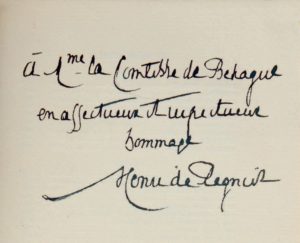 à Mme la Comtesse de Behague
en affectueux et respectueux
hommage
Henri de Regnier